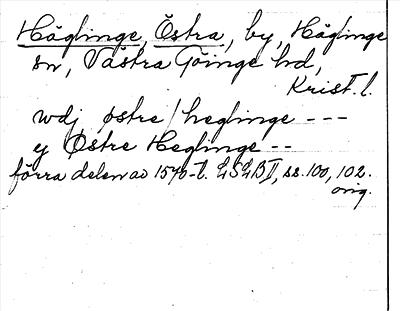 Häglinge, Östra, by, Häglinge
sn, Västra Göinge hd,
Krist. l.
wdj østre heglinge ---
ej Østre Heglinge --
förra delen av 1570-t. LSLB II, ss. 100, 102.
orig.